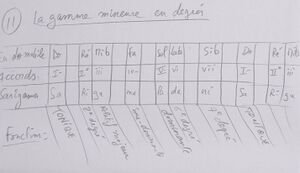 11 La gamme mineure en degré
En do mobile Do Ré Mib Fa Sol Lab Sib Do Ré Mib
Accords I- II° iii iv- V vi vii I- II° iii
Sarigama Sa Ri ga ma Pa da ni Sa Ri ga
Fonction: TONIQUE 2e degré Relatif majeur Sous-dominante dominante 6e degré 7e degré TONIQUE